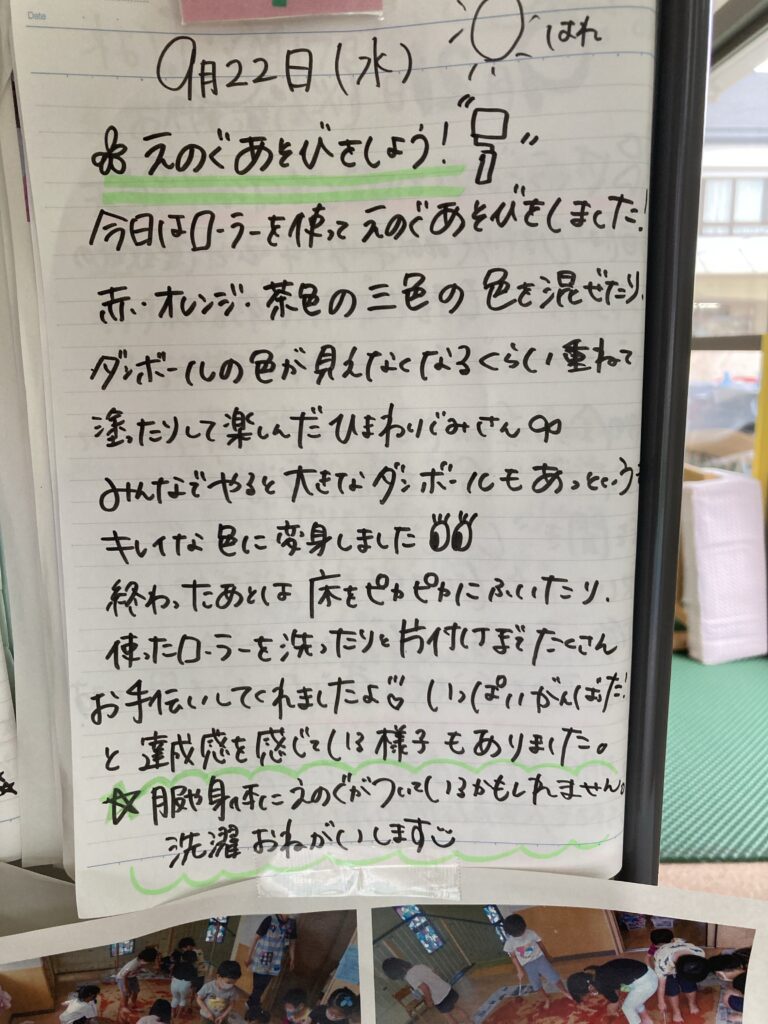 Date
9月22日(水) はれ
えのぐあそびをしよう!
今日はローラーを使って えのぐあそびをしました!
赤・オレンジ・茶色の三色の 色を混ぜたり、
ダンボールの色が見えなくなるくらい重ねて
塗ったりして楽しんだひまわりぐみさん
みんなでやると大きなダンボールもあっという
キレイな色に変身しました
終わったあとは床をピカピカにふいたり、
使ったローラーを洗ったりと片付けまでたくさん
お手伝いしてくれましたよ いっぱいがんばった!
と達成感を感じている様子もありました。
☆服や身体にえのぐがついているかもしれません。
洗濯おねがいします